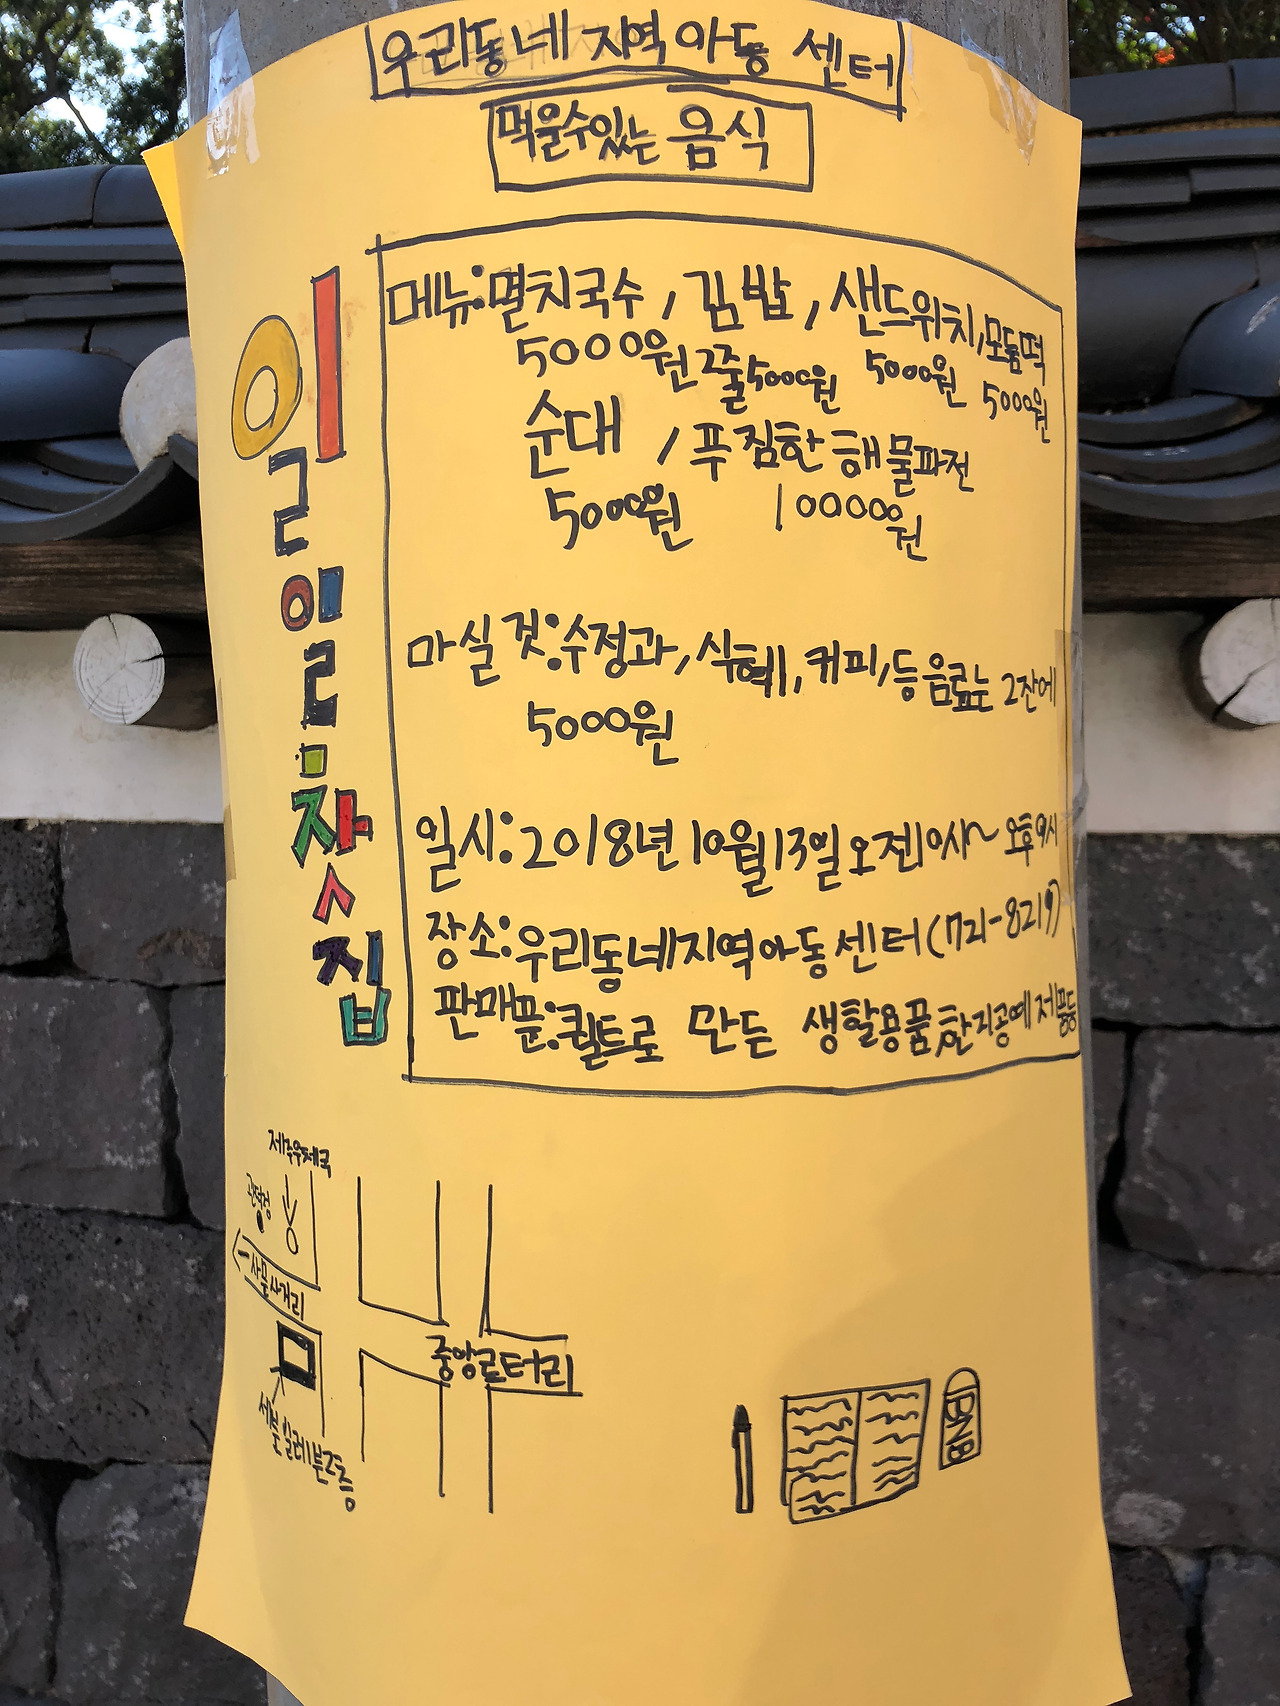 우리동네 지역 아동 센터
먹을수있는 음식
일일찻집
메뉴:멸치국수, 김밥, 샌드위치, 모둠떡
5000원 2줄5000원 5000원 5000원
순대, 푸짐한 해물파전
5000원 10000원
마실 것:수정과, 식혜, 커피, 등 음료는 2잔에
5000원
일시:2018년 10월13일 오전10시~ 오후9시
장소:우리동네지역아동센터(721-8219)
판매품:퀼트로 만든 생활용품,한지공예 제품등
제주우체국
관덕정
서문사거리
중앙로터리
2층